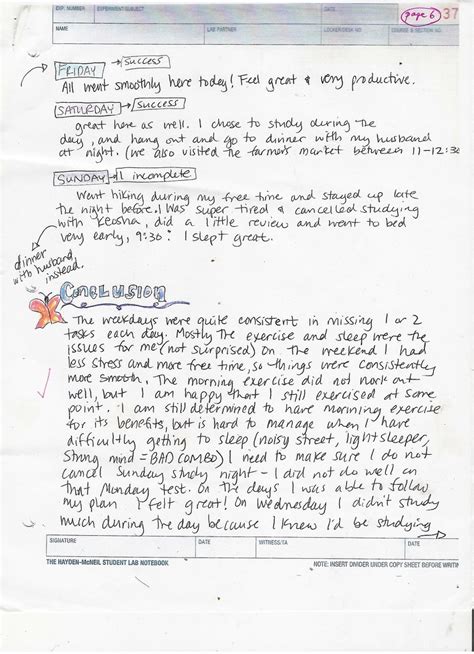 EXP. NUMBER EXPERIMENT/SUBJECT DATE page 6 37
NAME LAB PARTNER LOCKER/DESK NO. COURSE & SECTION NO.
FRIDAY → success
All went smoothly here today! Feel great & very productive.
SATURDAY → success
great here as well. I chose to study during the
day, and hang out and go to dinner with my husband
at night. (We also visited the farmers market between 11-12:30
SUNDAY → 1 incomplete
Went hiking during my free time and stayed up late
the night before. I was super tired & cancelled studying
with Keosha, did a little review and went to bed
very early, 9:30! I slept great.
dinner
with husband
instead.
Conclusion
The weekdays were quite consistent in missing 1 or 2
tasks each day. Mostly the exercise and sleep were the
issues for me (not surprised) On the weekend I had
less stress and more free time, so things were consistently
more smooth. The morning exercise did not work out
well, but I am happy that I still exercised at some
point. I am still determined to have morning exercise
for its benefits, but is hard to manage when I have
difficultly getting to sleep (noisy street, light sleeper,
strong mind = BAD COMBO) I need to make sure I do not
cancel Sunday study night - I did not do well on
that Monday test. On the days I was able to follow
my plan I felt great! On Wednesday I didn't study
much during the day because I knew I'd be studying
SIGNATURE DATE WITNESS/TA DATE
THE HAYDEN-McNEIL STUDENT LAB NOTEBOOK NOTE: INSERT DIVIDER UNDER COPY SHEET BEFORE WRITIN